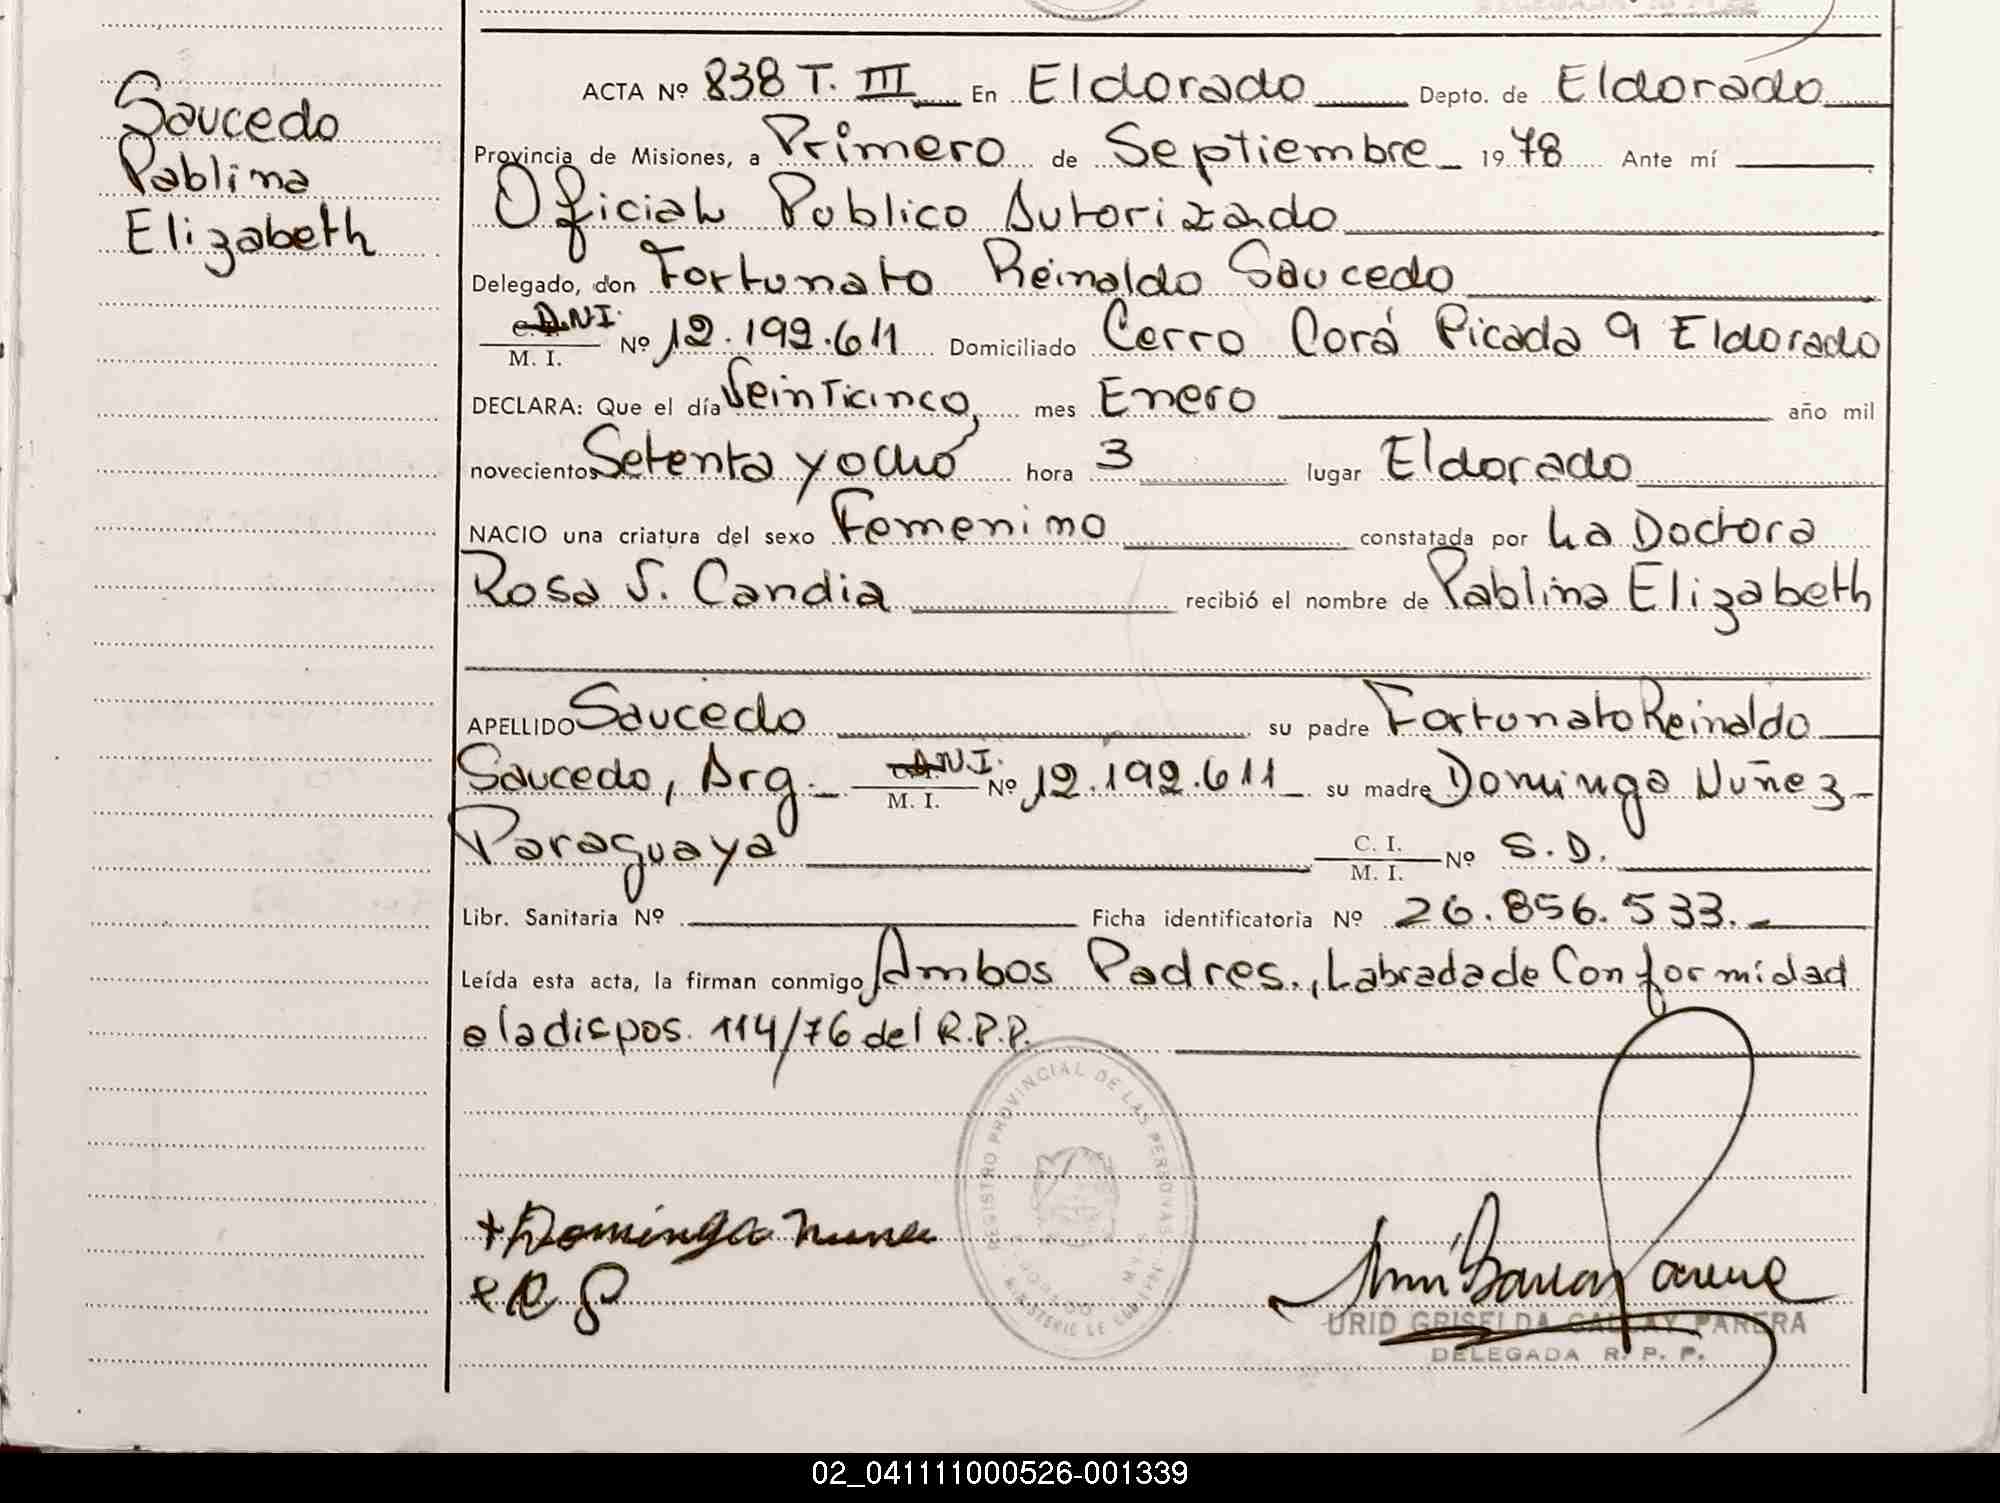 Saucedo
Pablina
Elizabeth
ACTA Nº 838 T. III En Eldorado Depto. de Eldorado
Provincia de Misiones, a Primero de Septiembre 1978 Ante mí
Oficial Publico Autorizado
Delegado, don Fortunato Reinaldo Saucedo
D.N.I.
M. I. Nº 12.192.611 Domiciliado Cerro Corá Picada 9 Eldorado
DECLARA: Que el día Veinticinco, mes Enero año mil
novecientos Setenta y ocho hora 3 lugar Eldorado
NACIO una criatura del sexo Femenino constatada por La Doctora
Rosa S. Candia recibió el nombre de Pablina Elizabeth
APELLIDO Saucedo su padre Fortunato Reinaldo
Saucedo, Arg. D.N.I. M. I. Nº 12.192.611 su madre Dominga Nuñez
Paraguaya C. I. M. I. Nº S.D.
Libr. Sanitaria Nº Ficha identificatoria Nº 26.856.533.
Leída esta acta, la firman conmigo Ambos Padres., Labrada de Conformidad
a la dispos. 114/76 del R.P.P.
REGISTRO PROVINCIAL DE LAS PERSONAS
+ Dominga Nunez
URID GRISELDA GARAY PARERA
DELEGADA R. P. P.
02_041111000526-001339